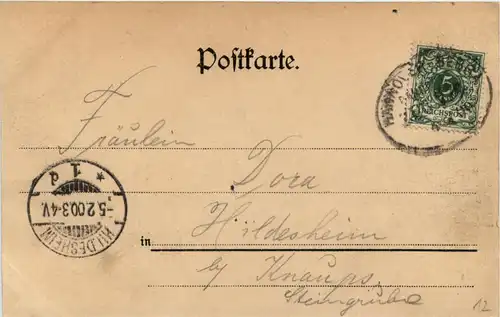 Postkarte.
Fräulein
Dora
in Hildesheim
by Knaups
Steingrube
HILDESHEIM
-5.2.00.3-4V.
* 1. d
5
REICHSPOST
12